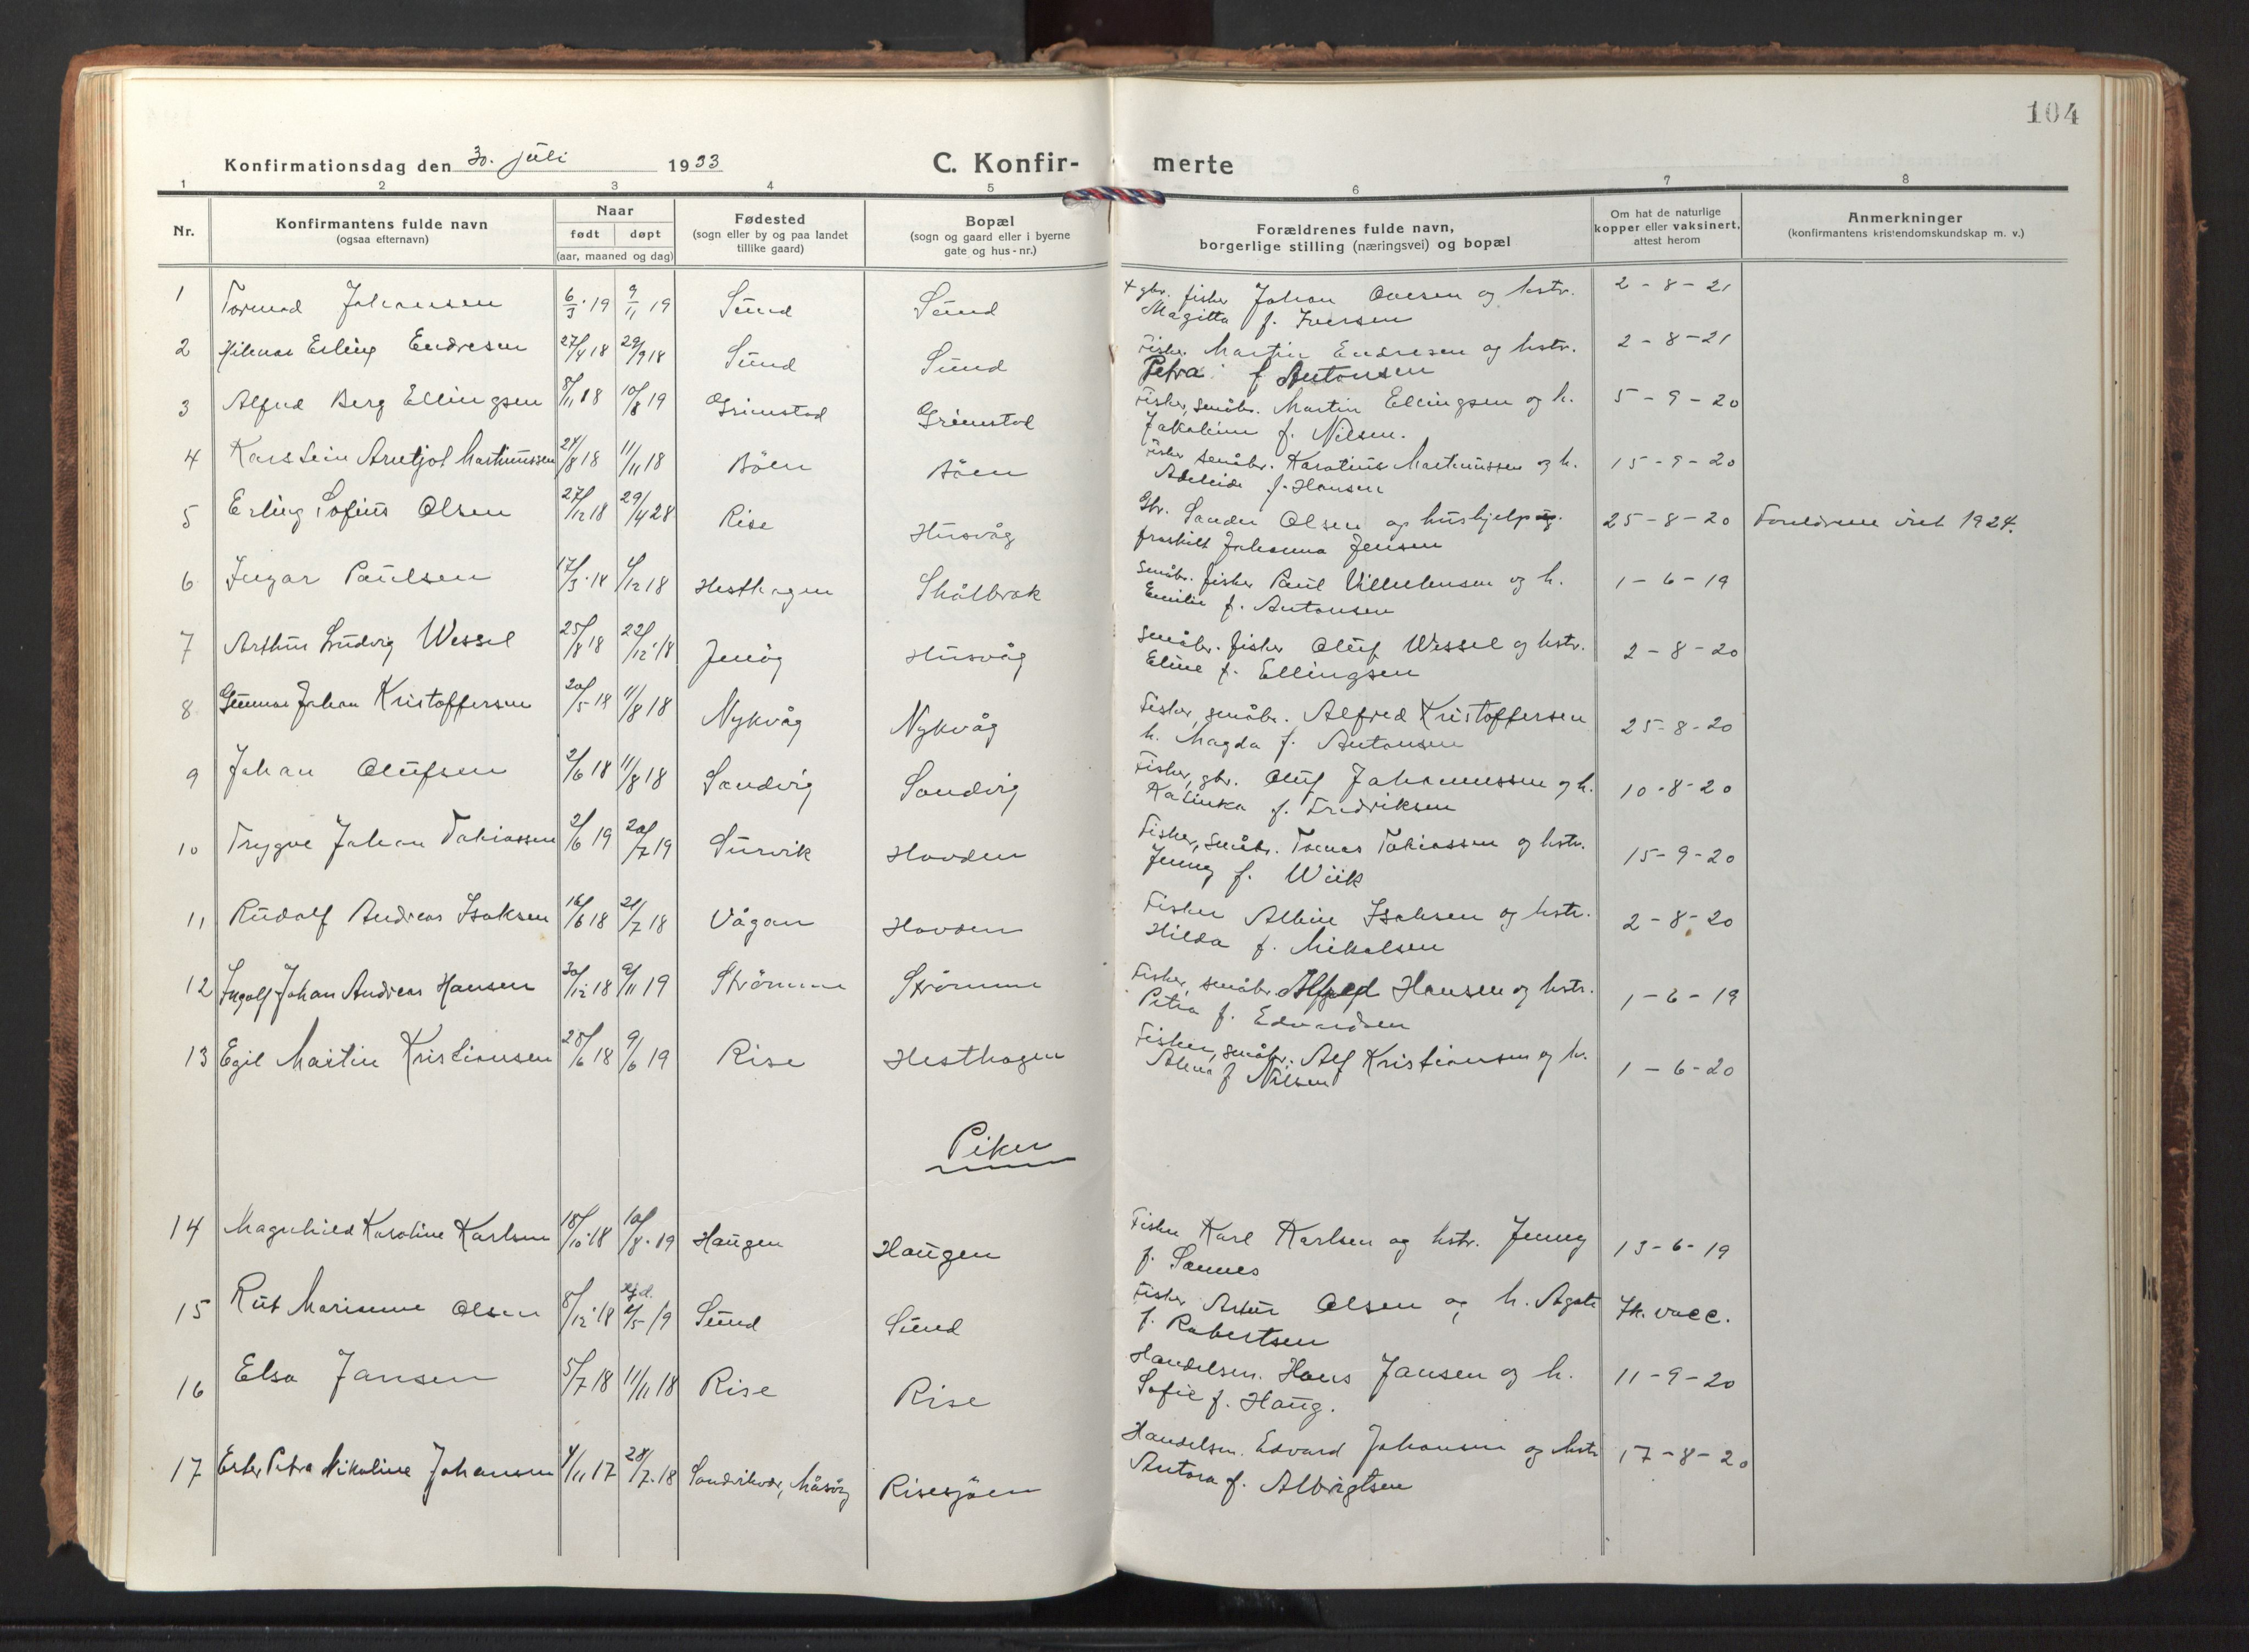 104
Konfirmationsdag den 30. juli 1933
C. Konfir-
merte
1 2 3 4 5 6 7 8
Nr.
Konfirmantens fulde navn
(ogsaa efternavn)
Naar
født døpt
(aar, maaned og dag)
Fødested
(sogn eller by og paa landet
tillike gaard)
Bopæl
(sogn og gaard eller i byerne
gate og hus-nr.)
Forældrenes fulde navn,
borgerlige stilling (næringsvei) og bopæl
Om hat de naturlige
kopper eller vaksinert,
attest herom
Anmerkninger
(konfirmantens kristendomskundskap m. v.)
1 Tormod Johansen 6/3 19 9/11 19 Sund Sund + gbr. fisker Johan Ovesen og hstr. 2-8-21
Magitta f. Iversen
2 Hilmar Erling Endresen 27/4 18 29/9 18 Sund Sund Fisker Martin Endresen og hstr. 2-8-21
Petra f Antonsen
3 Alfred Berg Ellingsen 8/11 18 10/8 19 Grimstad Grimstad Fisker, småbr. Martin Ellingsen og h. 5-9-20
Jakobine f. Nilsen.
4 Karstein Arntjot Martinussen 24/8 18 11/11 18 Böen Böen Fisker småbr. Karatius Martinussen og h. 15-9-20
Adeleide f. Hansen
5 Erling Sofius Olsen 27/12 18 29/4 28 Rise Husvåg Gbr. Sander Olsen og hushjelp 25-8-20 Foreldrene viet 1924.
fraskilt Johanna Jensen
6 Ingar Paulsen 17/3 18 1/12 18 Hesthagen Skålbrok Småbr. fisker Paul Villumsen og h. 1-6-19
Emilie f. Antonsen
7 Arthur Ludvig Wessel 25/8 18 22/12 18 Jenög Husvåg Småbr. fisker Oluf Wessel og hstr. 2-8-20
Eline f. Ellingsen
8 Gunnar Johan Kristoffersen 20/5 18 11/8 18 Nykvåg Nykvåg Fisker, småbr. Alfred Kristoffersen 25-8-20
h. Magda f. Antonsen
9 Johan Olufsen 2/6 18 11/8 18 Sandvig Sandvig Fisker, gbr. Oluf Johannessen og h. 10-8-20
Katinka f. Fredriksen
10 Trygve Johan Tobiassen 2/6 19 20/7 19 Survik Hovden Fisker, småbr. Tomas Tobiassen og hstr. 15-9-20
Jenny f. Wiik
11 Rudolf Andreas Isaksen 16/6 18 21/7 18 Vågan Hovden Fisker Albin Isaksen og hstr. 2-8-20
Hilda f. Mikalsen
12 Ingolf Johan Andreas Hansen 30/12 18 9/11 19 Strömme Strömme Fisker, småbr. Alfred Hansen og hstr. 1-6-19
Petra f. Edvardsen
13 Egil Martin Kristiansen 28/6 18 9/6 19 Rise Hesthagen Fisker, småbr. Alf Kristiansen og h. 1-6-20
Alma f Nilsen
Piker
14 Magnhild Karoline Karlsen 18/10 18 10/8 19 Haugen Haugen Fisker Karl Karlsen og hstr. Jenny 13-6-19
f. Sannes
15 Rut Marianne Olsen 8/12 18 Hjd. 2/5 19 Sund Sund Fisker Artur Olsen og h. Agate Ik. vacc.
f. Robertsen
16 Elsa Jansen 5/7 18 11/11 18 Rise Rise Handelsm. Hans Jansen og h. 11-9-20
Sofie f. Haug.
17 Ester Petra Nikoline Johansen 4/11 17 28/7 18 Sandvikvær, Måsöy Risesjöen Handelsm. Edvard Johansen og hstr 17-8-20
Antora f. Albrigtsen